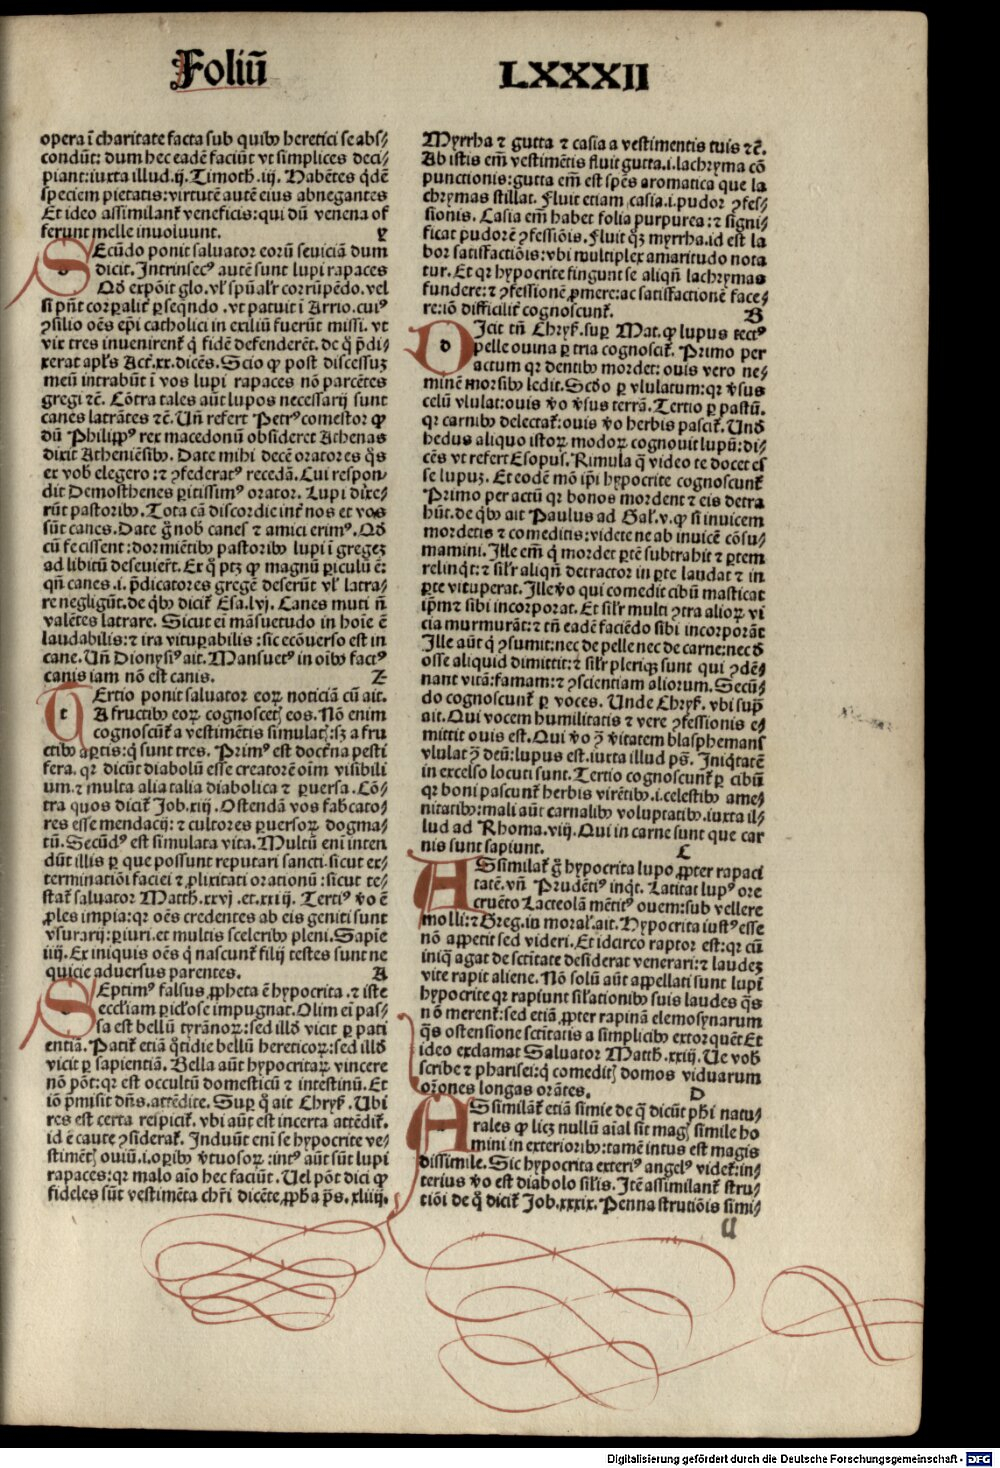 Foliū LXXXII
opera ī charitate facta sub quibꝰ heretici se abs⸗
condūt: dum hec eadē faciūt vt simplices deci⸗
piant: iuxta illud .ij. Timoth. iij. Habētes q̇dē
speciem pietatis: virtutē autē eius abnegantes
Et ideo assimilant᷑ veneficis: qui dū venena of
ferunt melle inuoluunt. Y
SEcūdo ponit saluator eorū seuiciā dum
dicit. Intrinsecꝰ autē sunt lupi rapaces
Qd̄ expōit glo. vl̓ spūal̓r corrūpēdo. vel
si pn̄t corꝑalit᷑ ꝑseqndo. vt patuit ī Arrio. cuiꝰ
ꝯsilio oēs epi̅ catholici in exiliū fuerūt missi. vt
vix tres inuenirent᷑ q̇ fidē defenderēt. de q̇ p̄di⸗
xerat apl̓s Act̓. xx. dicēs. Scio ꝙ post discessuꝫ
meū intrabūt ī vos lupi rapaces nō parcētes
gregi ⁊c̄. Cōtra tales aūt lupos necessarij sunt
canes latrātes ⁊c̄. Vn̄ refert Petrꝰ comestor ꝙ
dū Philippꝰ rex macedonū obsideret Athenas
dixit Atheniēsibꝰ. Date mihi decē oratores q̇s
ex vob̓ elegero: ⁊ ꝯfederatꝰ recedā. Cui respon⸗
dit Demosthenes ꝑitissimꝰ orator. Lupi dixe⸗
rūt pastoribꝰ. Tota cā discordie int̓ nos et vos
sūt canes. Date g̊ nob̓ canes ⁊ amici erimꝰ. Qd̄
cū fecissent: dormiētibꝰ pastoribꝰ lupi ī gregeꝫ
ad libitū deseuiert̄. Ex q̇ ptꝫ ꝙ magnū ꝑiculū ē:
qn̄ canes .i. p̄dicatores gregē deserūt vl̓ latra⸗
re negligūt. de q̇bꝰ dicit᷑ Esa. lvj. Canes muti n̄
valētes latrare. Sicut ei̅ māsuetudo in hoīe ē
laudabilis: ⁊ ira vituꝑabilis: sic ecōuerso est in
cane. Vn̄ Dionysiꝰ ait. Mansuetꝰ in oībꝰ factꝰ
canis iam nō est canis. Z
TErtio ponit saluator eoꝝ noticiā cū ait.
A fructibꝰ eoꝝ cognoscetꝭ eos. Nō enim
cognoscūt᷑ a vestimētis simulatꝭ: sꝫ a fru
ctibꝰ aꝑtis: q̇ sunt tres. Primꝰ est doctr̄na pesti
fera. qꝛ dicūt diabolū esse creatorē oīm visibili
um. ⁊ multa alia talia diabolica ⁊ ꝑuersa. Cō⸗
tra quos dicit᷑ Job. xiij. Ostendā vos fab̓cato⸗
res esse mendacij: ⁊ cultores ꝑuersoꝝ dogma⸗
tū. Secūdꝰ est simulata vita. Multū eni̅ inten
dūt illis ꝑ que possunt reputari sancti. sicut ex⸗
terminatiōi faciei ⁊ ꝓlixitati orationū: sicut te⸗
stat᷑ saluator Matth. xxvj. et. xxiij. Tertiꝰ v̊o ē
ꝓles impia: qꝛ oēs credentes ab eis geniti sunt
vsurarij: ꝑiuri. et multis sceleribꝰ pleni. Sapīe
iiij. Ex iniquis oēs q̇ nascunt᷑ filij testes sunt ne
quicie aduersus parentes. A
SEptimꝰ falsus ꝓpheta ē hypocrita. ⁊ iste
eccl̓iam ꝑicl̓ose impugnat. Olim ei̅ pas⸗
sa est bellū tyrānoꝝ: sed illd̓ vicit ꝑ pati
entiā. Patit᷑ etiā q̊tidie bellū hereticoꝝ: sed illd̓
vicit ꝑ sapientiā. Bella aūt hypocritaꝝ vincere
nō pōt: qꝛ est occultū domesticū ⁊ intestinū. Et
iō p̄misit dn̄s. attēdite. Suꝑ q̊ ait Chrys̓. Vbi
res est certa respicit᷑. vbi aūt est incerta attēdit᷑.
id ē caute ꝯsiderat᷑. Induūt eni̅ se hypocrite ve⸗
stimētꝭ ouiū. i. oꝑibꝰ v̓tuosoꝝ: intꝰ aūt sūt lupi
rapaces: qꝛ malo aīo hec faciūt. Vel pōt dici ꝙ
fideles sūt vestimēta chr̄i dicēte. ꝓph̓a ps̄. xliiij.
Myrrha ⁊ gutta ⁊ casia a vestimentis tuis ⁊c̄.
Ab istis em̄ vestimētis fluit gutta. i. lachryma cō
punctionis: gutta em̄ est spēs aromatica que la
chrymas stillat. Fluit etiam casia. i. pudor ꝯfes⸗
sionis. Casia em̄ habet folia purpurea: ⁊ signi⸗
ficat pudorē ꝯfessiōis. Fluit q̊ꝫ myrrha. id est la
bor satisfactiōis: vbi multiplex amaritudo nota
tur. Et qꝛ hypocrite fingunt se aliqn̄ lachrymas
fundere: ⁊ ꝯfessionē ꝓmere: ac satisfactionē face⸗
re: iō difficilit᷑ cognoscunt᷑. B
DIcit tn̄ Chrys̓. suꝑ Mat. ꝙ lupus tectꝰ
pelle ouina ꝑ tria cognoscit᷑. Primo per
actum qꝛ dentibꝰ mordet: ouis vero ne⸗
minē morsibꝰ ledit. Scd̓o ꝑ vlulatum: qꝛ v̓sus
celū vlulat: ouis v̊o v̓sus terrā. Tertio ꝑ pastū.
qꝛ carnibꝰ delectat᷑: ouis v̊o herbis pascit᷑. Vnd̓
hedus aliquo istoꝝ modoꝝ cognouit lupū: di⸗
cēs vt refert Esopus. Rimula q̄ video te docet eē
se lupuꝫ. Et eodē mō ip̄i hypocrite cognoscunt᷑
Primo per actū qꝛ bonos mordent ⁊ eis detra
hūt. de q̇bꝰ ait Paulus ad Gal̓. v. ꝙ si inuicem
mordetis ⁊ comeditis: videte ne ab inuicē cōsu⸗
mamini. Ille em̄ q̇ mordet ꝑtē subtrahit ⁊ ꝑtem
relinq̇t: ⁊ sil̓r aliqn̄ detractor in ꝑte laudat ⁊ in
ꝑte vituperat. Ille v̊o qui comedit cibū masticat
ip̄m ⁊ sibi incorporat. Et sil̓r multi ꝯtra alioꝝ vi
cia murmurāt: ⁊ tn̄ eadē faciēdo sibi incorporāt
Ille aūt q̇ ꝯsumit: nec de pelle nec de carne: nec d̓
osse aliquid dimittit: ⁊ sil̓r pleriqꝫ sunt qui ꝯdē⸗
nant vitā: famam: ⁊ ꝯscientiam aliorum. Secū⸗
do cognoscunt᷑ ꝑ voces. Unde Chrys̓. vbi sup̄
ait. Qui vocem humilitatis ⁊ vere ꝯfessionis e⸗
mittit ouis est. Qui v̊o ꝯ̄ v̓itatem blasphemans
vlulat ꝯ̄ deū: lupus est. iuxta illud ps̄. Iniq̇tatē
in excelso locuti sunt. Tertio cognoscunt᷑ ꝑ cibū
qꝛ boni pascunt᷑ herbis virētibꝰ. i. celestibꝰ ame⸗
nitatibꝰ: mali aūt carnalibꝰ voluptatibꝰ. iuxta il⸗
lud ad Rhoma. viij. Qui in carne sunt que car
nis sunt sapiunt. C
ASsimilat᷑ g̊ hypocrita lupo. ꝓpter rapaci
tatē. vn̄ Prudētiꝰ inq̇t. Latitat lupꝰ ore
cruēto Lacteolā mētitꝰ ouem: sub vellere
molli: ⁊ Greg. in moral̓. ait. Hypocrita iustꝰ esse
nō appetit sed videri. Et idcirco raptor est: qꝛ cū
iniq̄ agat de sctitate desiderat venerari: ⁊ laudeꝫ
vite rapit aliene. Nō solū aūt appellati sunt lupi
hypocrite qꝛ rapiunt sil̓ationibꝰ suis laudes q̇s
nō merent᷑: sed etiā. ꝓpter rapinā elemosynarum
q̇s ostensione sctitatis a simplicibꝰ extorquēt Et
ideo exclamat Saluator Matth. xxiij. Ue vob̓
scribe ⁊ pharisei: q̇ comeditꝭ domos viduarum
or̄ones longas orātes. D
ASsimilāt᷑ etiā simie de q̊ dicūt ph̓i natu⸗
rales ꝙ licꝫ nullū aīal sit magꝭ simile ho
mini in exterioribꝰ: tamē intus est magis
dissimile. Sic hypocrita exteriꝰ angelꝰ videt᷑: in⸗
terius v̊o est diabolo sil̓is. Itē assimilant᷑ stru⸗
tiōi de q̊ dicit᷑ Job. xxxix. Penna strutiōis simi⸗
Digitalisierung gefördert durch die Deutsche Forschungsgemeinschaft - DFG